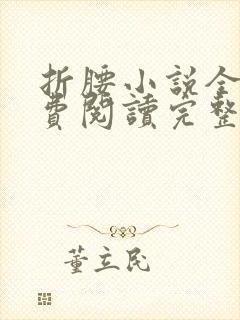 折腰小説全
費閱讀完整
董立民